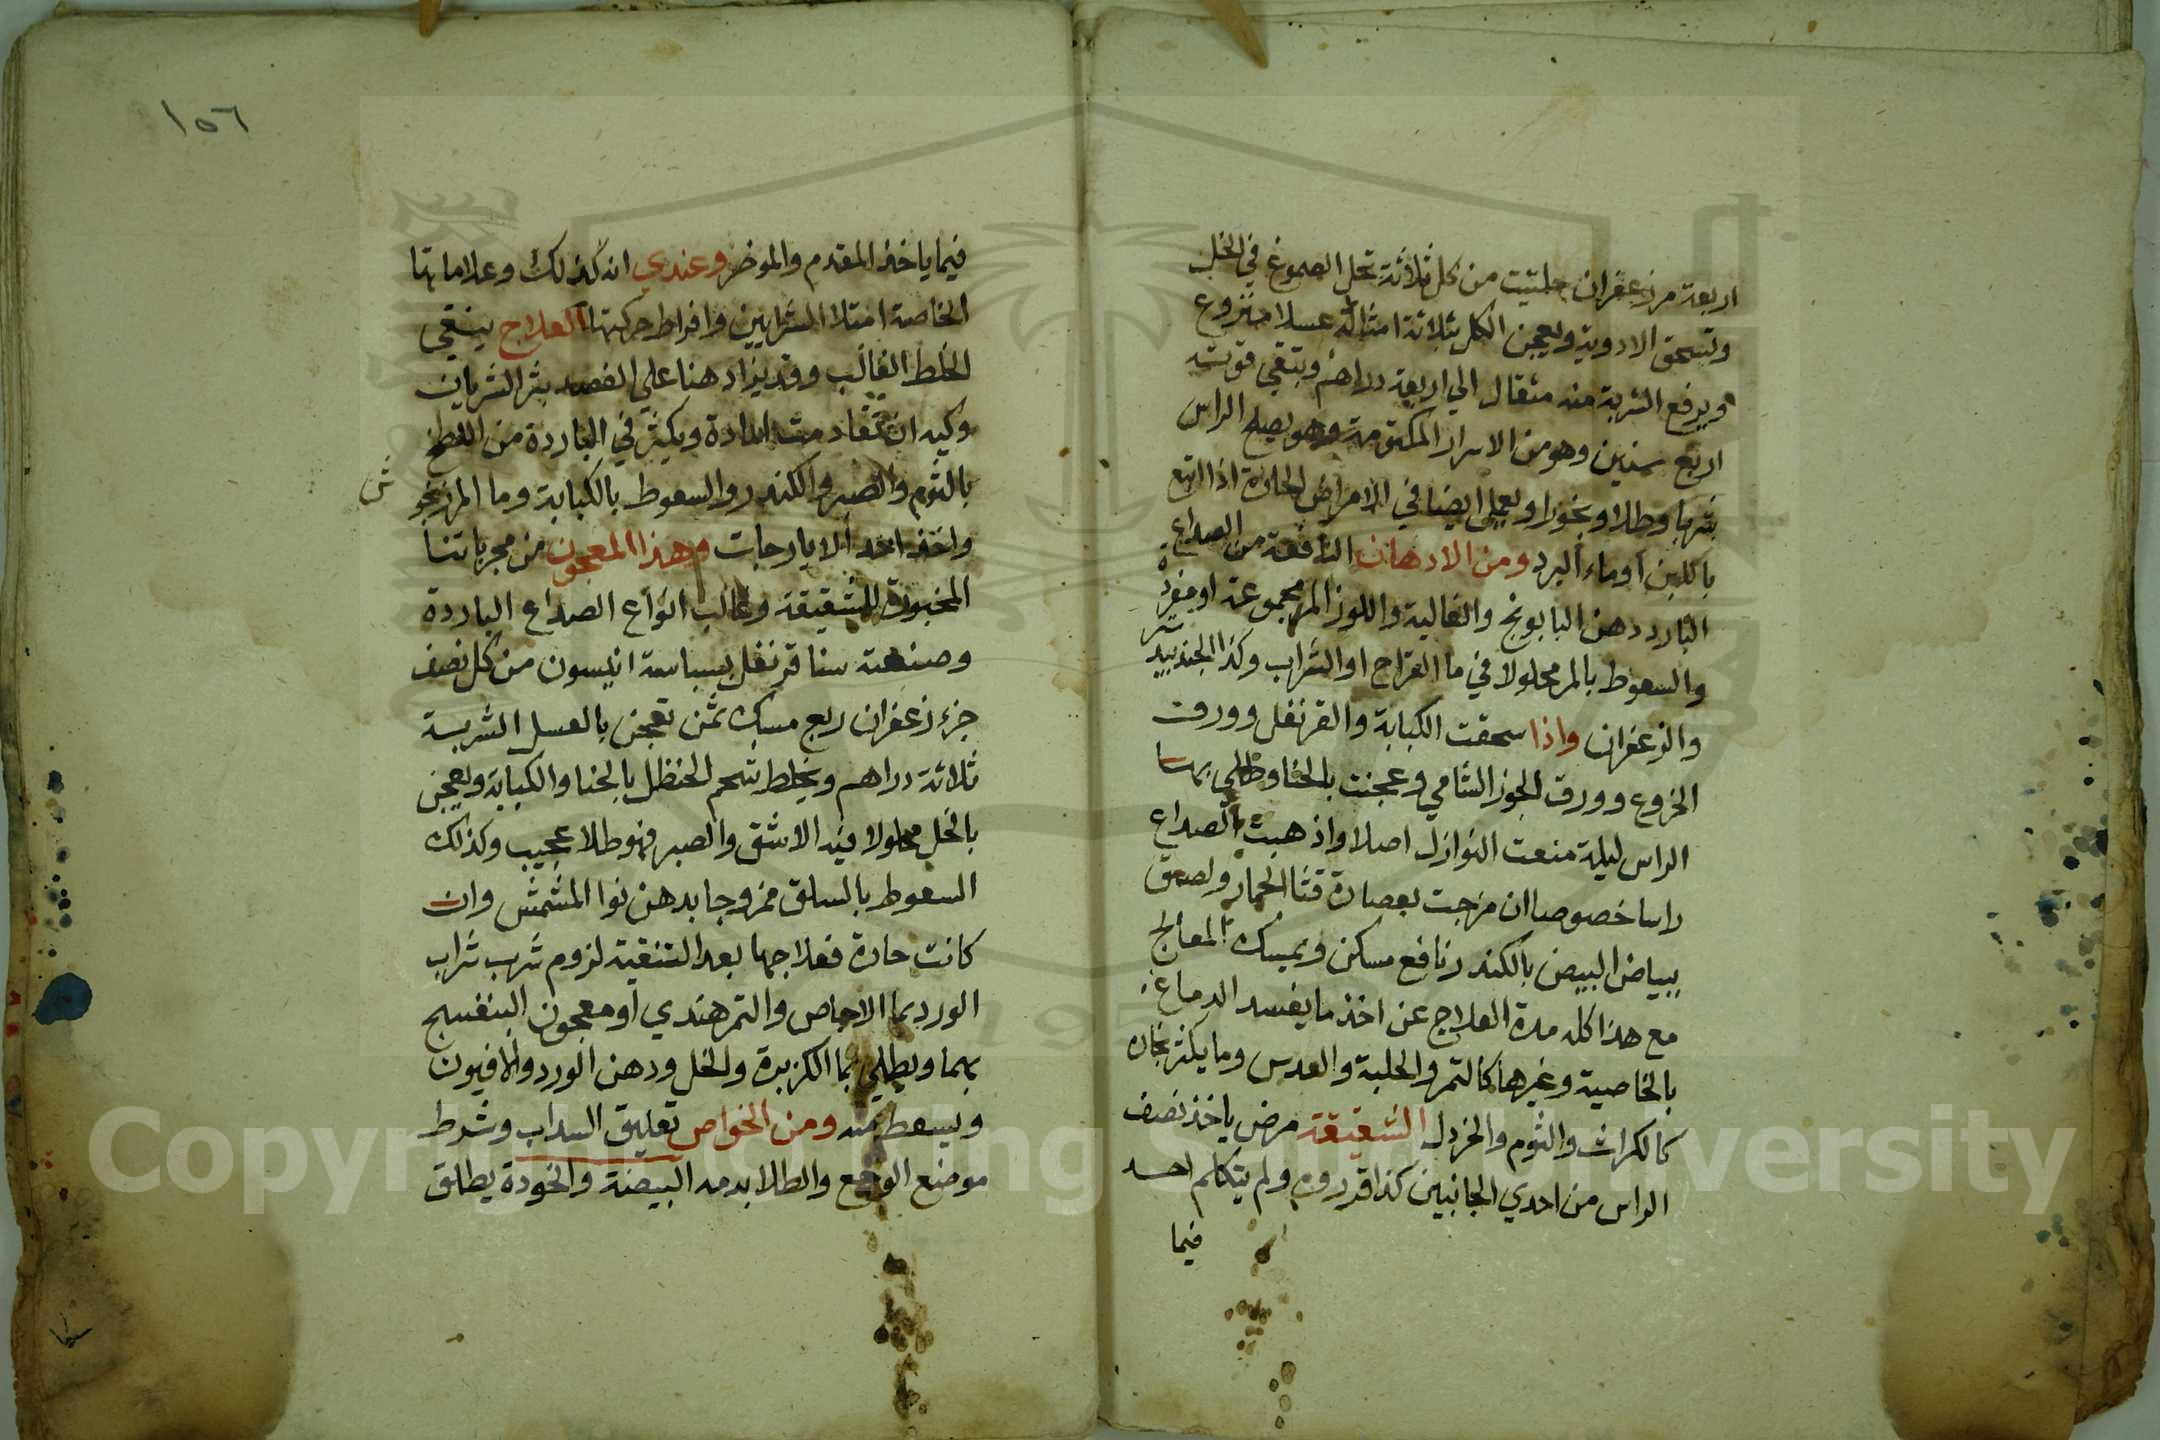 اربعة مر زعفران حلتيت من كل ثلاثة تحل الصموغ في الخل
وتسحق الادوية ويعجن الكل بثلاثة امثاله عسلا منزوع
ويرفع الشربة منه مثقال الي اربعة دراهم وبتقي قوته
اربع سنين وهو من الاسرار المكتومة وهو يصلح الراس
شربا وطلا وبخورا ويعمل ايضا في الامراض الحارة اذا اتبع
باللبن او ماء البرد ومن الادهان النافعة من الصداع
البارد دهن البابونج والغالية واللوز المر مجموعة او مفردة
والسعوط بالمر محلولا في ما القراح او الشراب وكذا الجندبيدستر
والزعفران واذا سحقت الكبابة والقرنفل وورق
الخروع وورق الجوز الشامي وعجنت بالحنا وطلي بها
الراس ليلة منعت النوازل اصلا واذهبت الصداع
راسا خصوصا ان مزجت بعصارة قثا الحمار ولصق
ببياض البيض بالكندر نافع مسكن ويمسك المعالج
مع هذا كله مدة العلاج عن اخذ ما يفسد الدماغ
بالخاصية وغيرها كالتمر والحلبة والعدس وما يكثر بخاره
كالكراث والثوم والخردل الشقيقة مرض ياخذ نصف
الراس من احدي الجانبين كذا قرروه ولم يتكلم احد
فيما
١٥٦
فيما ياخذ المقدم والموخر وعندي انه كذلك وعلاماتها
الخاصة امتلا الشرايين وافراط حركتها العلاج ينقي
الخلط الغالب وقد يزاد هنا علي الفصد بتر الشريان
وكيه ان تقادمت المادة ويكثر في الباردة من اللطخ
بالثوم والصبر والكندر والسعوط بالكبابة وما المرزنجوش
واخذ احد الايارجات وهذا المعجون من مجرباتنا
المخبورة للشقيقة وغالب انواع الصداع الباردة
وصنعته سنا قرنفل بسباسة انيسون من كل نصف
جزء زعفران ربع مسك ثمن تعجن بالعسل الشربة
ثلاثة دراهم ويخلط شحم الحنظل بالحنا والكبابة ويعجن
بالخل محلولا فيه الاشق والصبر فهو طلا عجيب وكذلك
السعوط بالسلق ممزوجا بدهن نوا المشمش وان
كانت حارة فعلاجها بعد التنقية لزوم شرب شراب
الورد بما الاجاص والتمر هندي او معجون البنفسج
بهما ويطلي بما الكزبرة والخل ودهن الورد والافيون
ويسعط منه ومن الخواص تعليق السداب وشرط
موضع الوجع والطلا بدمه البيضة والخودة يطلق
Copyright © King Saud University
1957